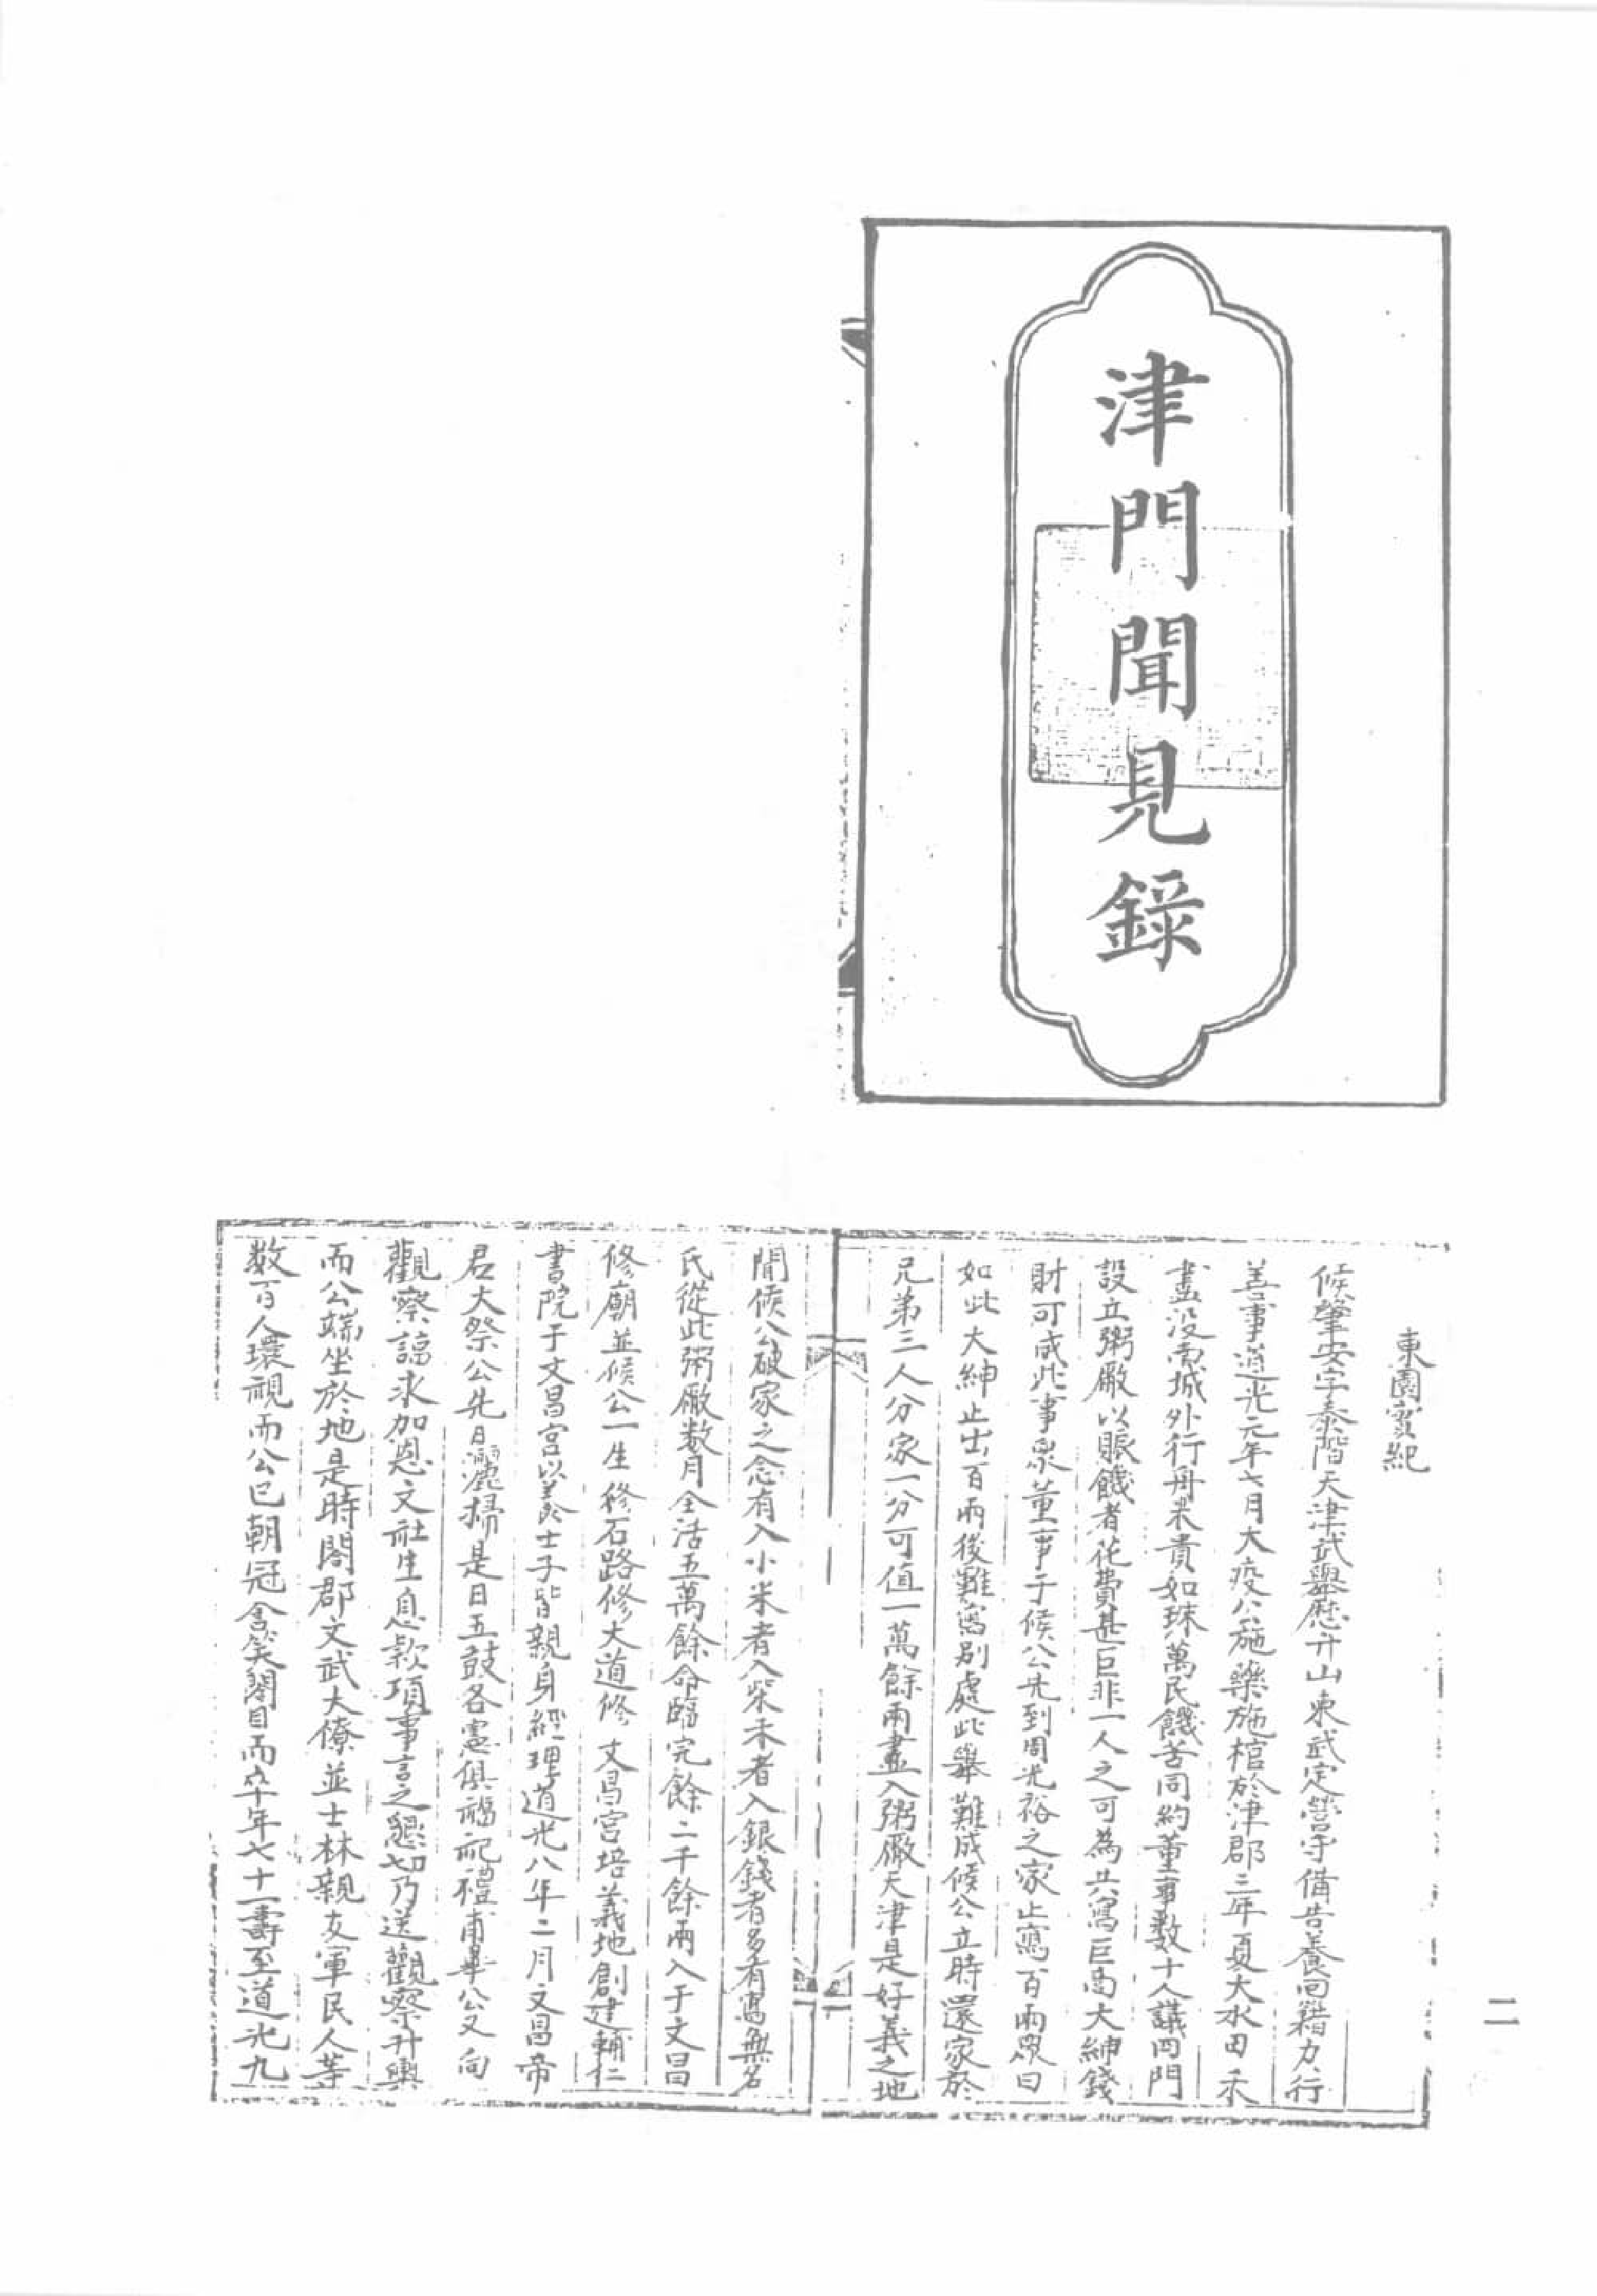 津門聞見錄
東園實紀
候肇安字泰階天津武舉歷升山東武定營守備告養回籍力行
善事道光元年七月大疫公施藥施棺於津郡三年夏大水田禾
盡沒南城外行舟米貴如珠萬民饑苦同約董事數十人議四門
設立粥廠以賑饑者花費甚巨非一人之可為共寫巨商大紳錢
財可成此事衆董事于候公先到周光裕之家止寫百兩眾曰
如此大紳止出百兩後難寫別處此舉難成候公立時還家於
兄弟三人分家一分可值一萬餘兩盡入粥廠天津是好義之地
聞候公破家之念有入小米者入柴禾者入銀錢者多有寫無名
氏從此粥廠数月全活五萬餘命臨完餘二千餘兩入于文昌
修廟並候公一生修石路修大道修文昌宮培義地創建輔仁
書院于文昌宮以士子皆親身經理道光八年二月文昌帝
君大祭公先日灑掃是日五鼓各憲俱福祀禮甫畢公又向
觀察諄求加恩文社生息款項事言之懇切乃送觀察升輿
而公端坐於地是時閤郡文武大僚並士林親友軍民人等
数百人環視而公已朝冠含笑閉目而卒年七十一壽至道光九
二